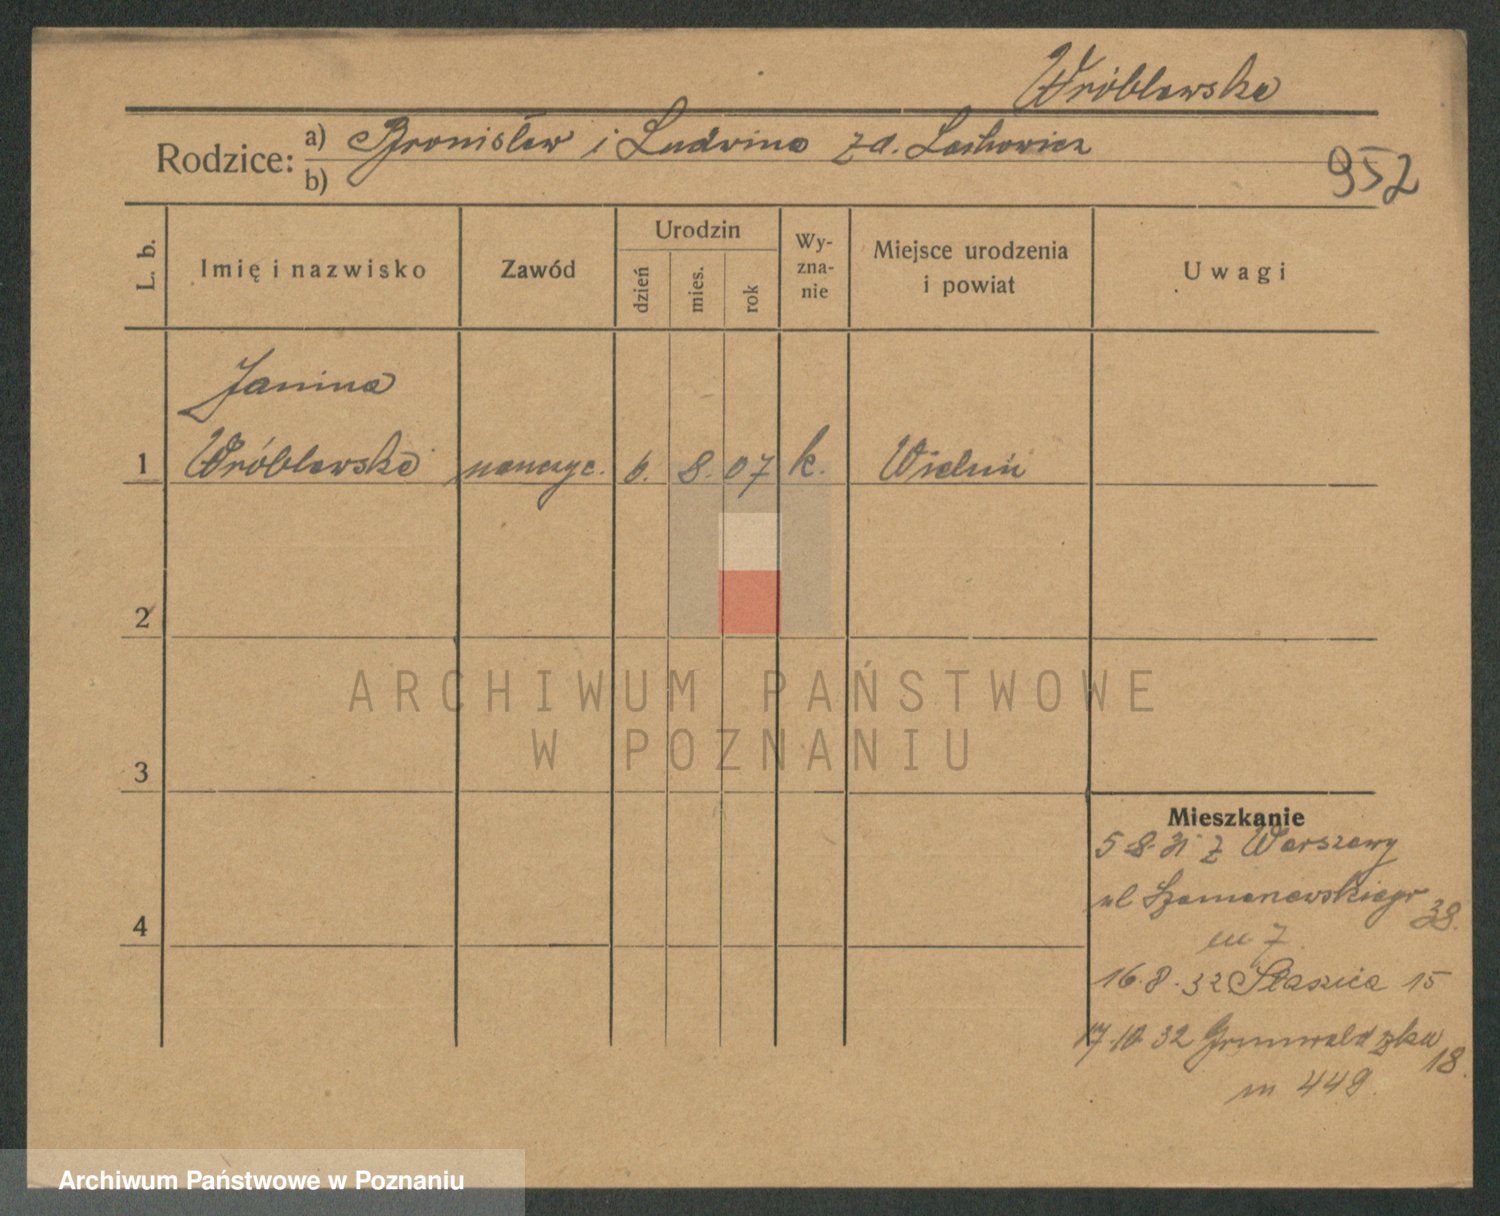 Wróblewska
Rodzice: a) Bronisław i Ludwina z d. Lachowicz
b)
952
L. b. Imię i nazwisko Zawód Urodzin dzień mies. rok Wyzna-nie Miejsce urodzenia i powiat Uwagi
Janina
1 Wróblewska nauczyc. 6. 8. 07 k. Wieluń
2
3
4
ARCHIWUM PAŃSTWOWE
W POZNANIU
Mieszkanie
5 8. 31 z Warszawy
ul Szamarzewskiego 38.
m 7.
16.8.32 Staszica 15
17.10 32 Grunwaldzka 18.
m 449.
Archiwum Państwowe w Poznaniu